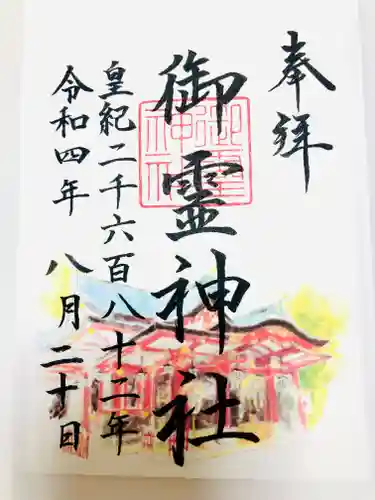 奉拝
御霊神社
皇紀二千六百八十二年
令和四年 八月二十日
御霊神社